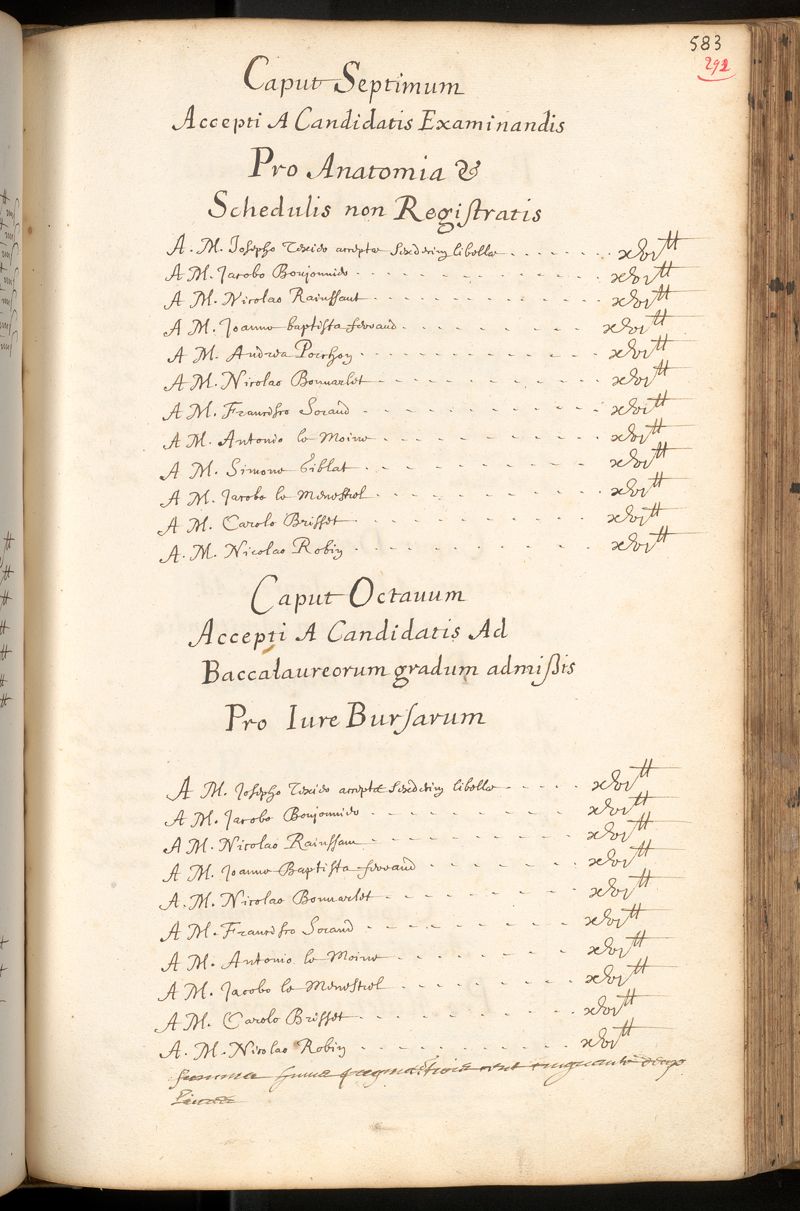 583
292
Caput Septimum
Accepti A Candidatis Examinandis
Pro Anatomia &
Schedulis non Regiſtratis
A. M. Josepho acceptæ sexdecim libellæ . . . . . . xvi tt
A M. Jacobo Bonjonnier . . . . . . . . . . xvi tt
A M. Nicolao Rainssant . . . . . . . . . . xvi tt
A M. Joanne baptista ferrand . . . . . . . . xvi tt
A M. Andrea Porchon . . . . . . . . . . xvi tt
A M. Nicolao Bonvarlet . . . . . . . . . . xvi tt
A M. Francisco Soraud . . . . . . . . . . xvi tt
A M. Antonio le Moine . . . . . . . . . . xvi tt
A M. Simone Giblat . . . . . . . . . . xvi tt
A M. Jacobo le Menestrel . . . . . . . . . . xvi tt
A M. Carolo Brisset . . . . . . . . . . xvi tt
A. M. Nicolao Robin . . . . . . . . . . xvi tt
Caput Octauum
Accepti A Candidatis Ad
Baccalaureorum gradum admißis
Pro Iure Burſarum
A M. Josepho acceptæ sexdecim libellæ . . . . . xvi tt
A M. Jacobo Bonjonnier . . . . . . . . . . xvi tt
A M. Nicolao Rainssan . . . . . . . . . . xvi tt
A M. Joanne Baptista ferraud . . . . . . . . xvi tt
A. M. Nicolao Bonvarlet . . . . . . . . . . xvi tt
A M. Francisco Soraud . . . . . . . . . . xvi tt
A M. Antonio le Moine . . . . . . . . . . xvi tt
A M. Jacobo le Menestrel . . . . . . . . . . xvi tt
A M. Carolo Brisset . . . . . . . . . . xvi tt
A. M. Nicolao Robin . . . . . . . . . . xvi tt